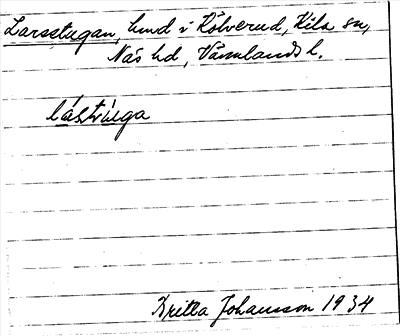 Larsstugan, hmd i Kölverud, Kila sn,
Näs hd, Värmlands l.
Britta Johansson 1934